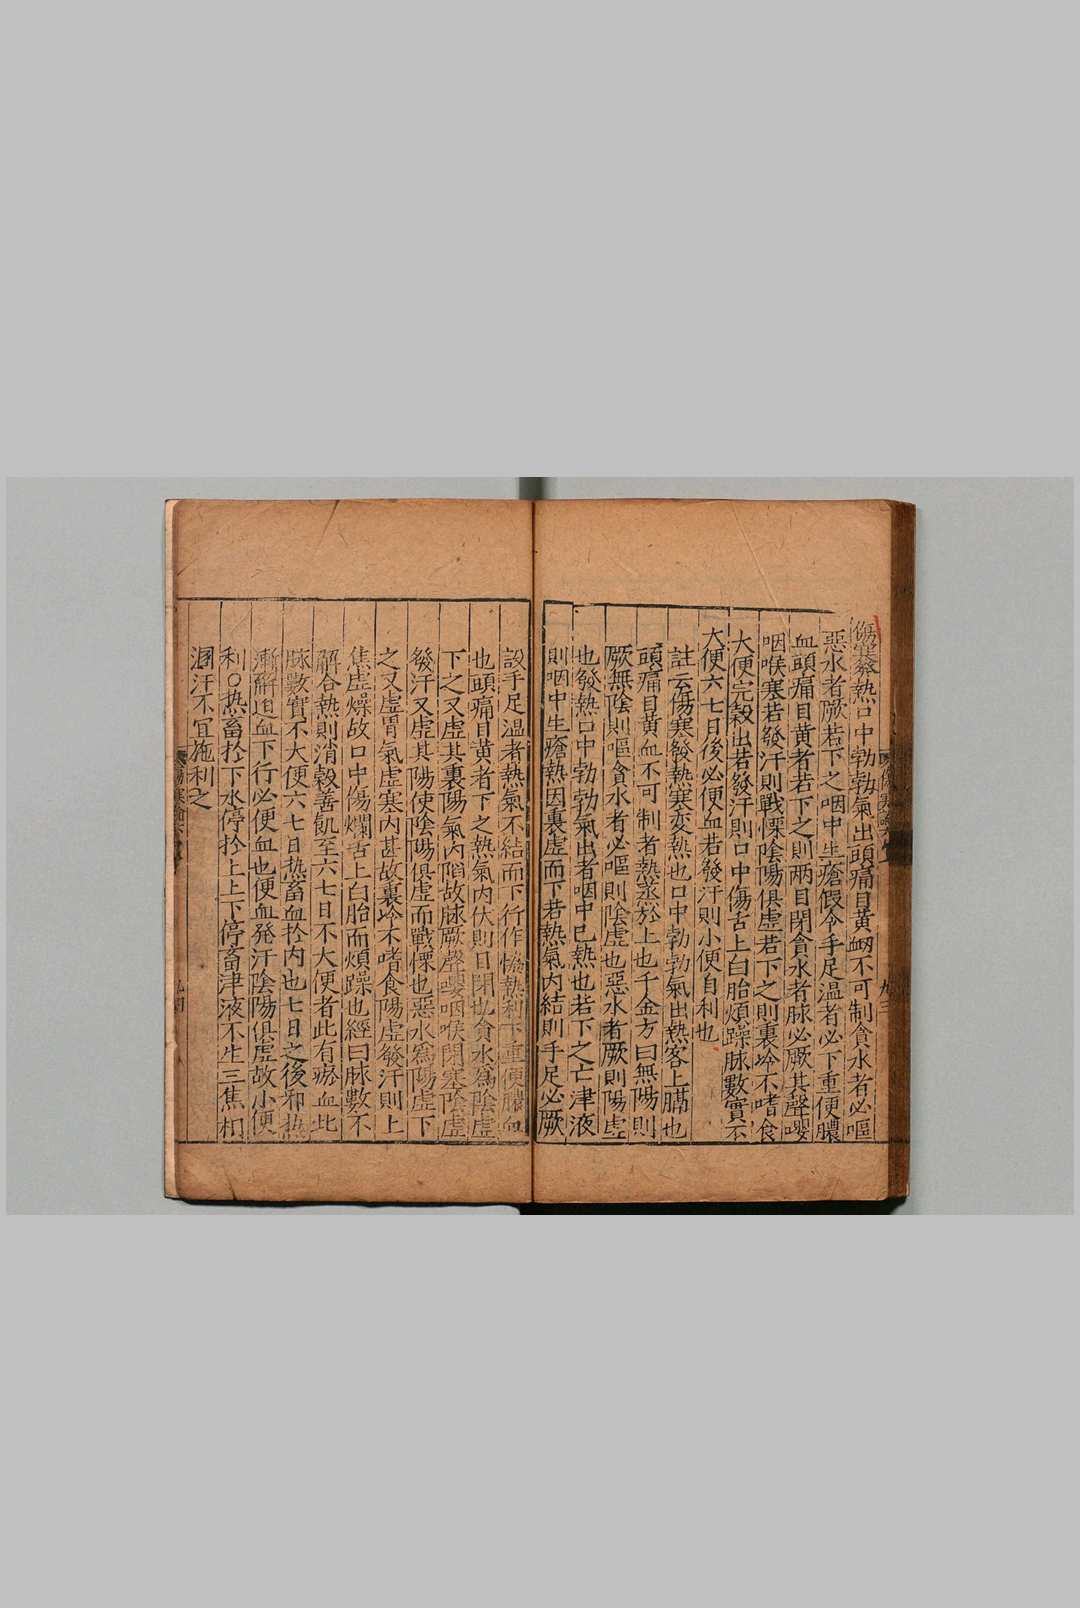 傷寒發熱口中勃勃氣出頭痛目黃衂不可制貪水者必嘔
惡水者厥若下之咽中生瘡假令手足溫者必下重便膿
血頭痛目黃者若下之則兩目閉貪水者脉必厥其聲嚶
咽喉塞若發汗則戰慄陰陽俱虛若下之則裏冷不嗜食
大便完穀出若發汗則口中傷舌上白胎煩躁脉數實不
大便六七日後必便血若發汗則小便自利也
註云傷寒發熱寒变熱也口中勃勃氣出熱客上膈也
頭痛目黃血不可制者熱蒸於上也千金方曰無陽則
厥無陰則嘔貪水者必嘔則陰虛也惡水者厥則陽虛
也發熱口中勃勃氣出者咽中已熱也若下之亡津液
則咽中生瘡熱因裏虛而下若熱氣內結則手足必厥
設手足溫者熱氣不結而下行作恊熱利下重便膿血
也頭痛目黃者下之熱氣內伏則目閉也貪水為陰虛
下之又虛其裏陽氣內陷故脉厥聲嚶咽喉閉塞陰虛
發汗又虛其陽使陰陽俱虛而戰慄也惡水為陽虛下
之又虛胃氣虛寒內甚故裏冷不嗜食陽虛發汗則上
焦虛燥故口中傷爛舌上白胎而煩躁也經曰脉數不
解合熱則消穀善飢至六七日不大便者此有瘀血此
脉數實不大便六七日热畜血於内也七日之後邪热
漸解迫血下行必便血也便血発汗陰陽俱虛故小便
利○热畜於下水停於上上下停畜津液不生三焦相
溷汗不宜施利之